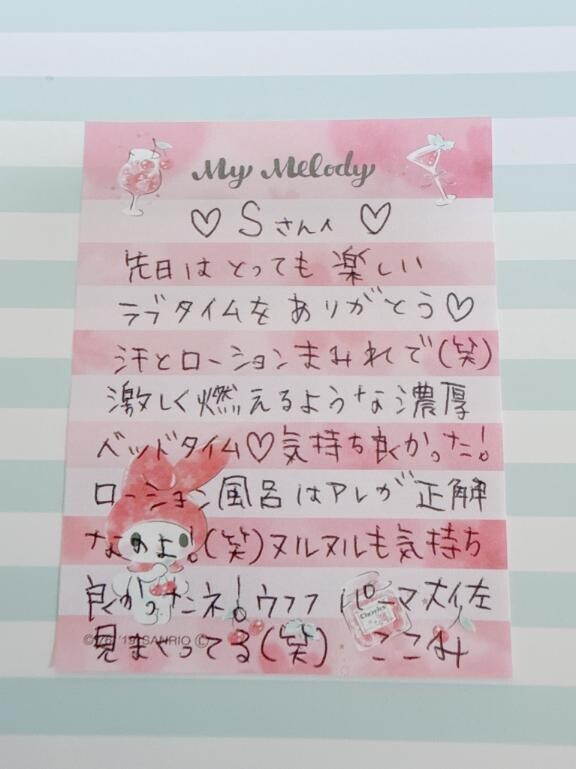 My Melody
♡ Sさんへ ♡
先日はとっても楽しい
ラブタイムをありがとう♡
汗とローションまみれで(笑)
激しく燃えるような濃厚
ベッドタイム♡気持ち良かった!
ローション風呂はアレが正解
なのよ!(笑)ヌルヌルも気持ち
良かったネ!ウフフ パーマ大佐
見まくってる(笑) ここみ
©'76, '19 SANRIO Ⓛ